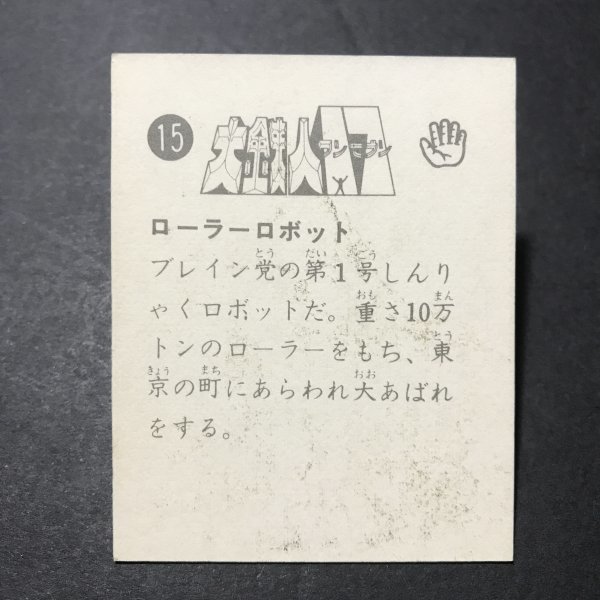 15
大鉄人17
ワンセブン
ローラーロボット
ブレイン党の第1号しんり
ゃくロボットだ。重さ10万
トンのローラーをもち、東
京の町にあらわれ大あばれ
をする。